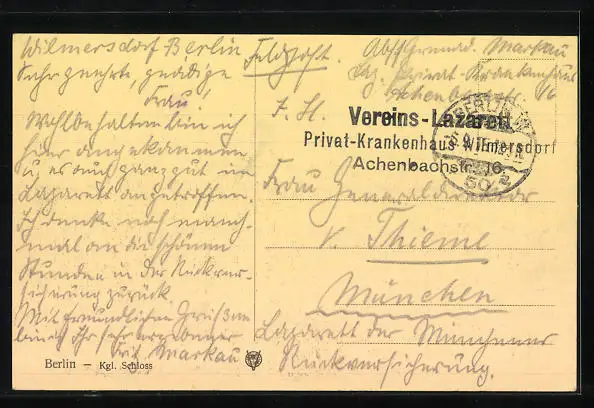 Wilmersdorf Berlin
Sehr geehrte, gnädige
Frau!
Wohlbehalten bin ich
hier angekommen
u. es auch ganz gut im
Lazarett angetroffen.
Ich denke noch manch-
mal an die schönen
Stunden in der Rückver-
sicherung zurück
Mit freundlichen Grüßen
Ihr sehr ergebener
Markau
Berlin — Kgl. Schloss
Feldpost.
Abs. Markau
Privat-Krankenhaus
Achenbachstr. 16
z. Zt.
Vereins-Lazarett
Privat-Krankenhaus Wilmersdorf
Achenbachstr. 16.
BERLIN W
50
Frau Generaldirektor
v. Thieme
München
Lazarett der Münchener
Rückversicherung.